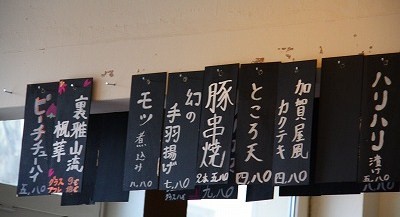 ハリハリ
漬け
五八〇
加賀屋風
カクテキ
四八〇
ところ天
四八〇
豚串焼
2本五八〇
幻の
手羽揚げ
モツ煮込み
裏雅山流
楓華
ピーチチューハイ
五八〇